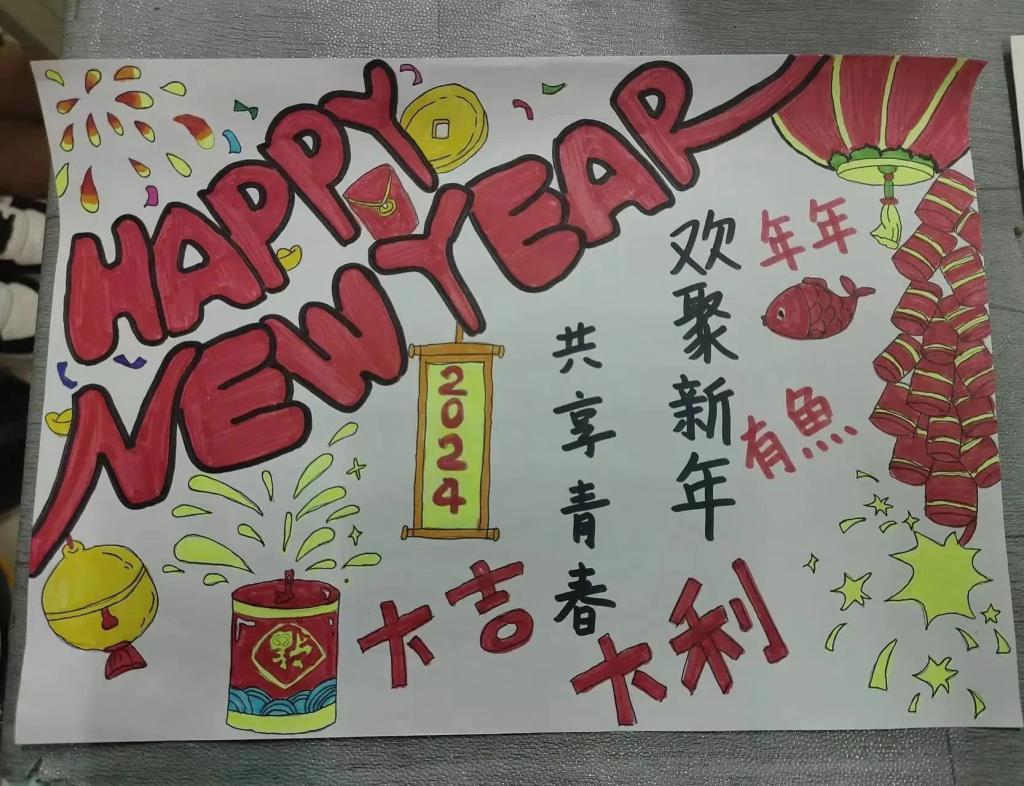 HAPPY
NEW YEAR
2024
欢聚新年
共享青春
年年
有魚
大吉
大利